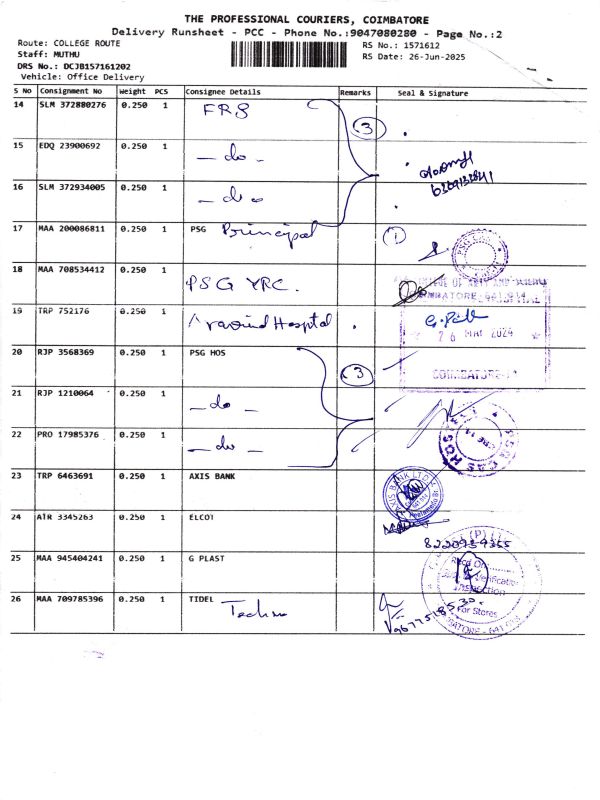 THE PROFESSIONAL COURIERS, COIMBATORE
Delivery Runsheet - PCC - Phone No.:9047080280 - Page No.:2
Route: COLLEGE ROUTE
RS No.: 1571612
Staff: MUTHU
RS Date: 26-Jun-2025
DRS No.: DCJB157161202
Vehicle: Office Delivery
S No Consignment No Weight PCS Consignee Details Remarks Seal & Signature
14 SLM 372880276 0.250 1 FRS
3
15 EDQ 23900692 0.250 1 - do -
16 SLM 372934005 0.250 1 - do -
17 MAA 200086811 0.250 1 PSG Principal 1
18 MAA 708534412 0.250 1 PSG YRC.
19 TRP 752176 0.250 1 Aravind Hospital
26 MAR 2024
COIMBATORE
20 RJP 3568369 0.250 1 PSG HOS
3
21 RJP 1210064 0.250 1 - do -
22 PRO 17985376 0.250 1 - do -
23 TRP 6463691 0.250 1 AXIS BANK
AXIS BANK LTD
24 AIR 3345263 0.250 1 ELCOT
8220939355
25 MAA 945404241 0.250 1 G PLAST
26 MAA 709785396 0.250 1 TIDEL Techno
For Stores
9677518530